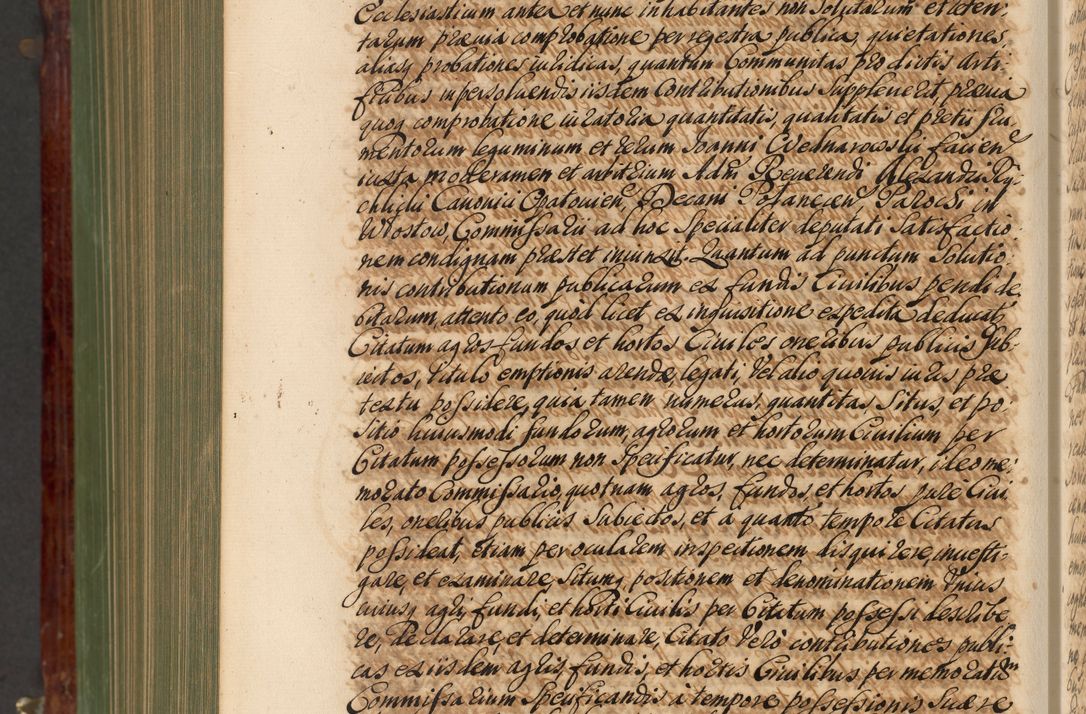 Ecclesiasticum antea et nunc inhabitantes non solutarum et reten-
tarum prævia comprobatione per regestra publica, quietationes,
aliasq probationes iuridicas, quantum Communitas pro dictis arti-
ficibus in persolvendis iisdem Contributionibus suppleverit, prævia
quoq comprobatione iuratoria quantitatis, qualitatis et pretii fru-
mentorum leguminum et rerum Joanni Bednarowski facien
iuxta moderamen et arbitrium Adm Reverendi Alexandri Ry-
chlicki Canonici Opatovien, Decani Polanecen Parochi in
Wrostow, Commissarii ad hoc specialiter deputati satisfactio-
nem condignam præstet iniunxit. Quantum ad punctum solutio-
nis contributionum publicarum ex fundis Civilibus pendi de-
bitarum, attento eo, quod licet ex inquisitione expedita deducat
Citatum agros fundos et hortos Civiles oneribus publicis sub-
iectos, titulo emptionis arendæ, legati, vel alio quovis iuris præ
textu possidere, quia tamen numerus, quantitas, situs, et po-
sitio huiusmodi fundorum, agrorum et hortorum Civilium per
Citatum possessorum non specificatur, nec determinatur, ideo me-
morato Commissario, quotnam agros, fundos, et hortos jure Civi-
les, oneribus publicis subiectos, et a quanto tempore Citatus
possideat, etiam per ocularem inspectionem disquirere, investi-
gare, et examinare, situmq positionem et denominationem unius
cuiusq agri, fundi, et horti Civilis per Citatum possessi describe-
re, declarare, et determinare, Citato vero contributiones publi-
cas ex iisdem agris, fundis, et hortis Civilibus, per memoratum
Commissarium specificandis a tempore possessionis suæ re